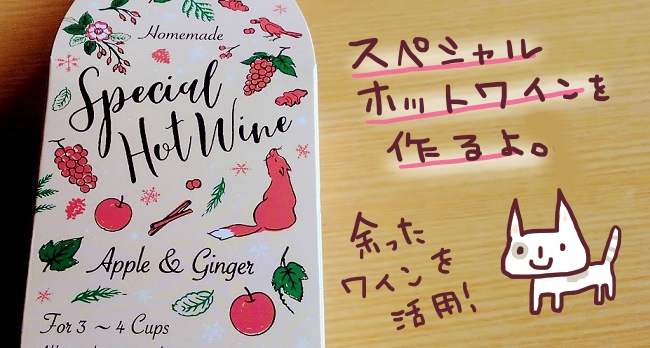 Homemade
Special
Hot Wine
Apple & Ginger
For 3 ~ 4 Cups
スペシャル
ホットワインを
作るよ。
余った
ワインを
活用!